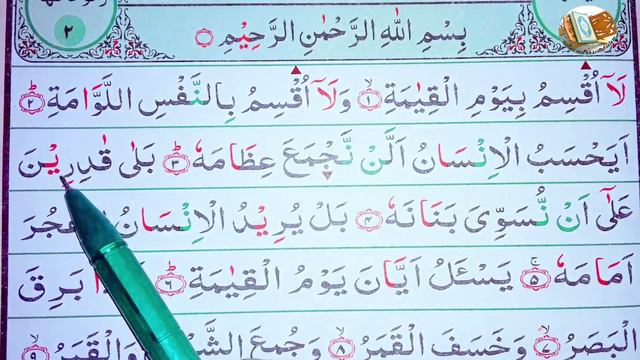 ٢
بِسْمِ اللهِ الرَّحْمٰنِ الرَّحِيْمِ
لَآ اُقْسِمُ بِيَوْمِ الْقِيٰمَةِ ۙ﴿۱﴾ وَلَآ اُقْسِمُ بِالنَّفْسِ اللَّوَّامَةِ ؕ﴿۲﴾
اَيَحْسَبُ الْاِنْسَانُ اَلَّنْ نَّجْمَعَ عِظَامَهٗ ؕ﴿۳﴾ بَلٰى قٰدِرِيْنَ
عَلٰٓى اَنْ نُّسَوِّىَ بَنَانَهٗ ﴿۴﴾ بَلْ يُرِيْدُ الْاِنْسَانُ
اَمَامَهٗ ۚ﴿۵﴾ يَسْـَٔلُ اَيَّانَ يَوْمُ الْقِيٰمَةِ ؕ﴿۶﴾ بَرِقَ
الْبَصَرُ ۙ﴿۷﴾ وَخَسَفَ الْقَمَرُ ۙ﴿۸﴾ وَجُمِعَ وَالْقَمَرُ ۙ